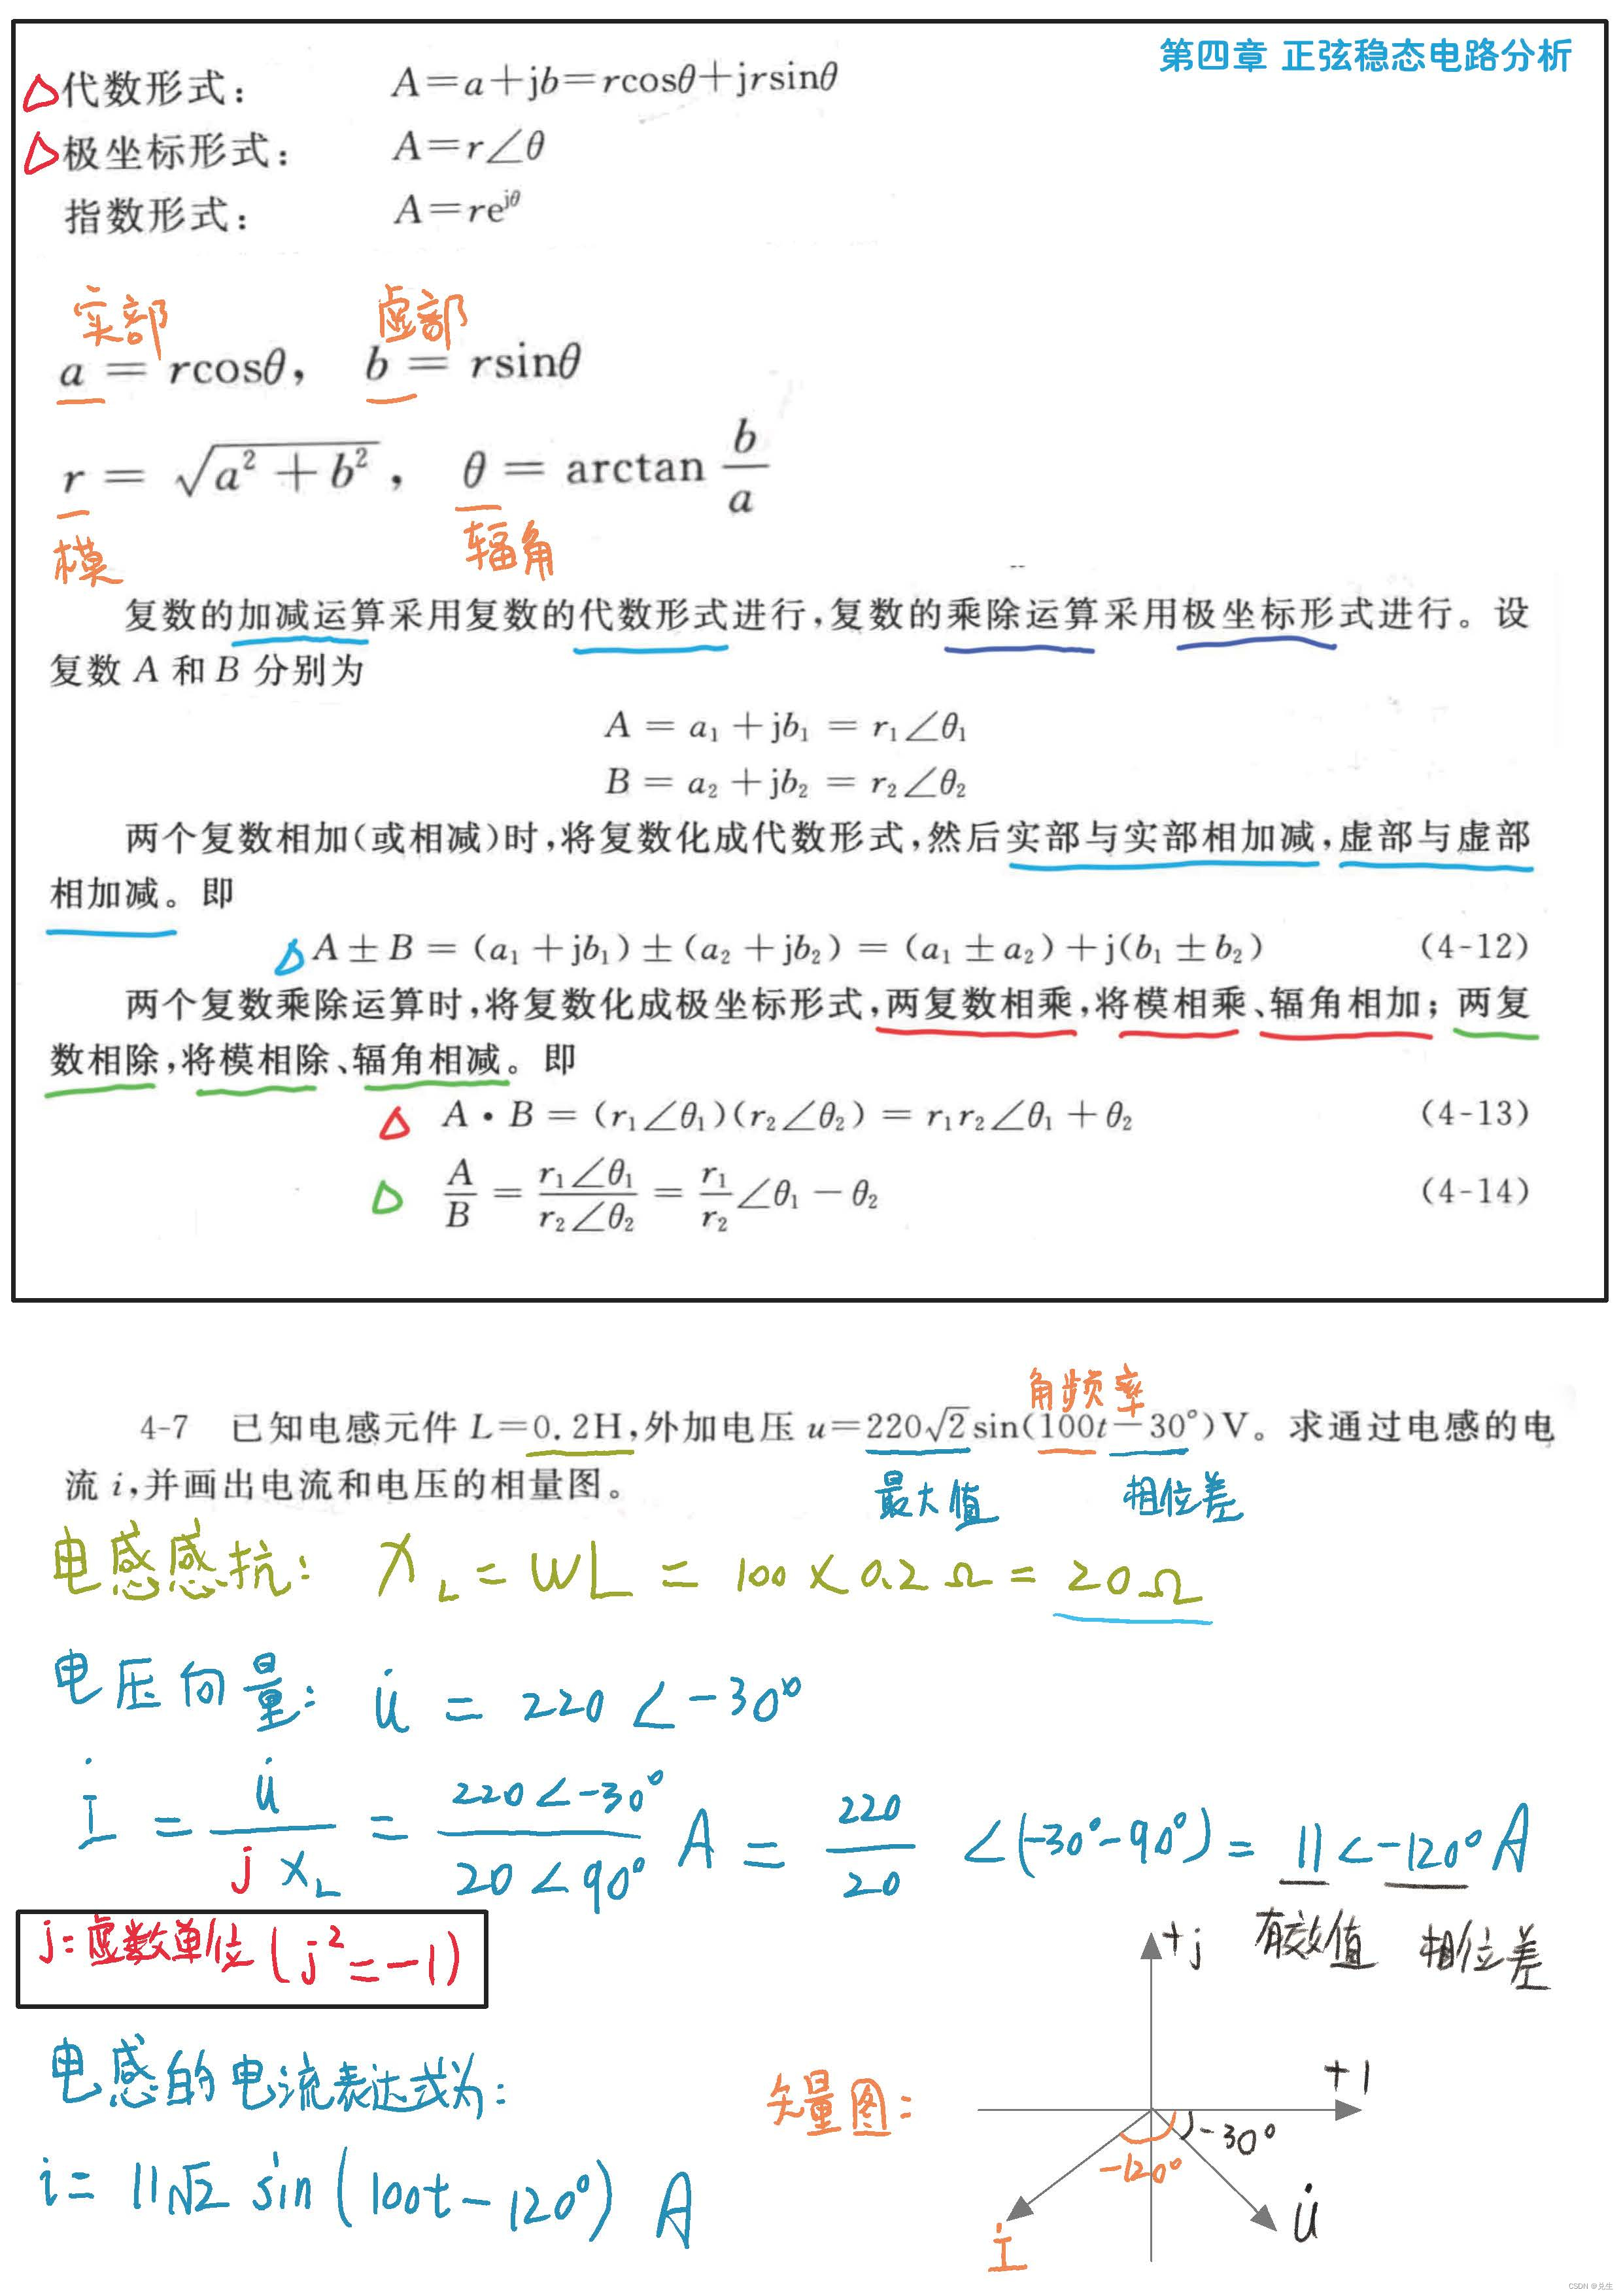 第四章 正弦稳态电路分析
代数形式: A=a+jb=rcosθ+jrsinθ
极坐标形式: A=r∠θ
指数形式: A=re^{jθ}
实部 虚部
a = rcosθ, b = rsinθ
r = √(a²+b²), θ = arctan b/a
模 辐角
复数的加减运算采用复数的代数形式进行,复数的乘除运算采用极坐标形式进行。设
复数 A 和 B 分别为
A = a₁ + jb₁ = r₁∠θ₁
B = a₂ + jb₂ = r₂∠θ₂
两个复数相加(或相减)时,将复数化成代数形式,然后实部与实部相加减,虚部与虚部
相加减。即
A ± B = (a₁ + jb₁) ± (a₂ + jb₂) = (a₁ ± a₂) + j(b₁ ± b₂) (4-12)
两个复数乘除运算时,将复数化成极坐标形式,两复数相乘,将模相乘、辐角相加;两复
数相除,将模相除、辐角相减。即
A • B = (r₁∠θ₁)(r₂∠θ₂) = r₁r₂∠θ₁ + θ₂ (4-13)
A/B = r₁∠θ₁/r₂∠θ₂ = r₁/r₂ ∠θ₁ − θ₂ (4-14)
角频率
4-7 已知电感元件 L=0.2H,外加电压 u=220√2sin(100t−30°)V。求通过电感的电
流 i,并画出电流和电压的相量图。
最大值 相位差
电感感抗: X_L = WL = 100×0.2Ω = 20Ω
电压向量: u̇ = 220∠-30°
İ = u̇/jX_L = 220∠-30°/20∠90° A = 220/20 ∠(-30°-90°) = 11∠-120° A
有效值 相位差
j=虚数单位(j²=-1)
+j
电感的电流表达式为:
矢量图:
+1
-30°
-120°
i= 11√2 sin(100t-120°) A
u̇
İ
CSDN @兑生